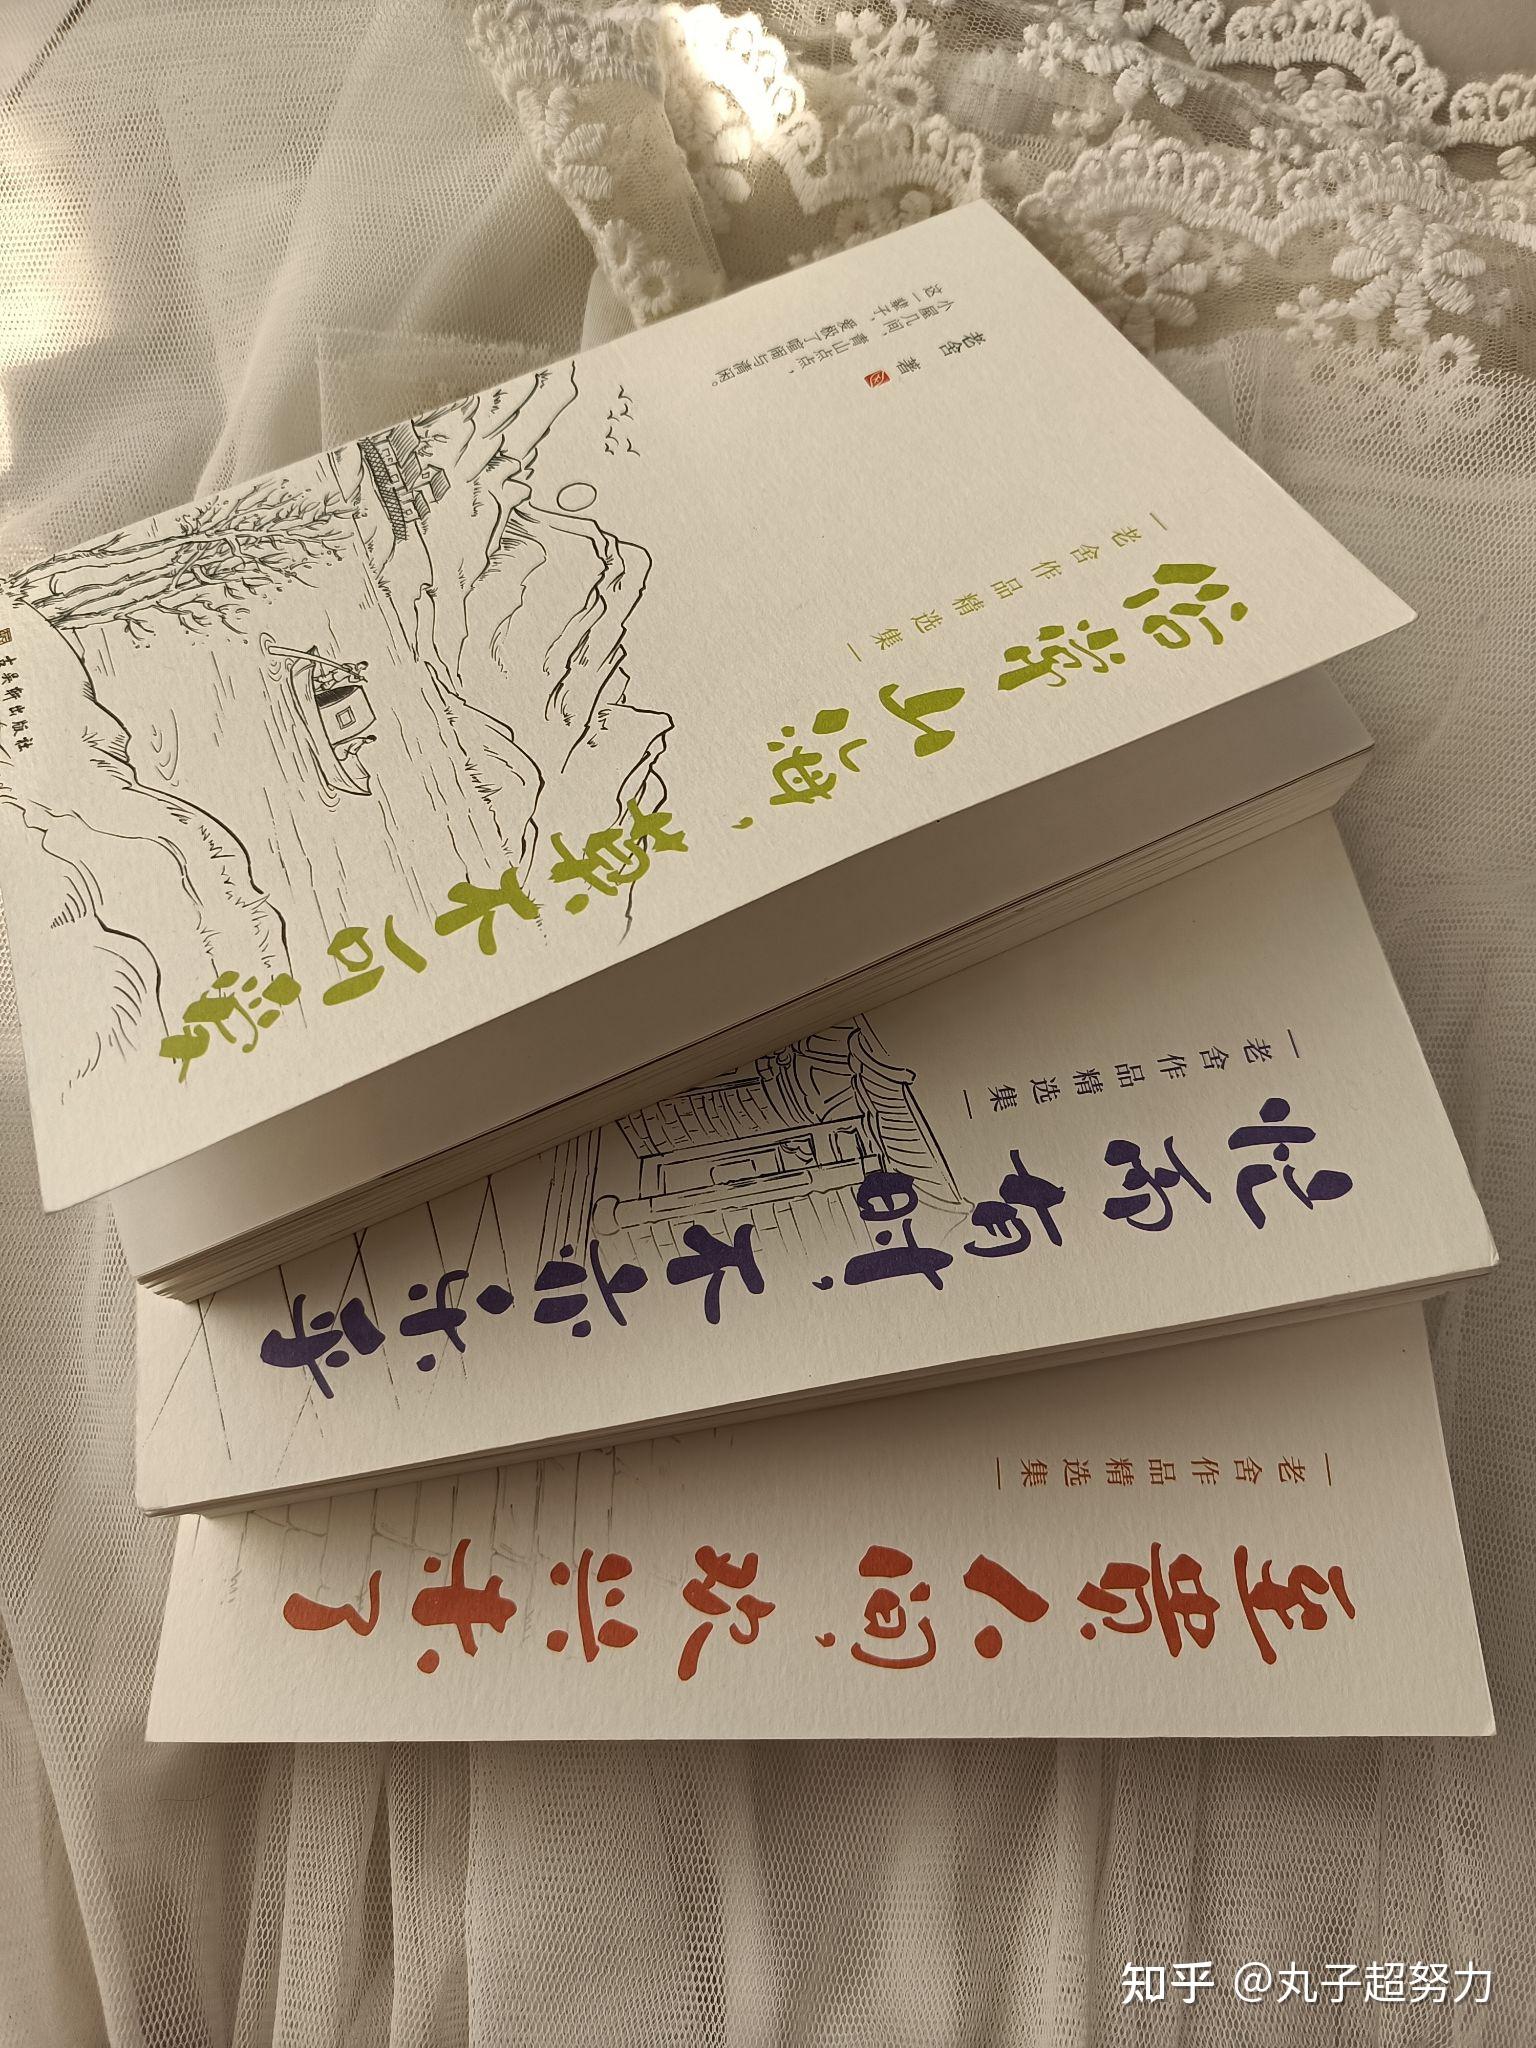 俗常山海，草木可爱
一老舍作品精选集一
老舍 著
小屋几间，青山点点，
这一辈子，爱极了喧闹与清闲。
古吴轩出版社
忙而有时，不亦乐乎
一老舍作品精选集一
至贵人间，欢兴来了
一老舍作品精选集一
知乎 @丸子超努力